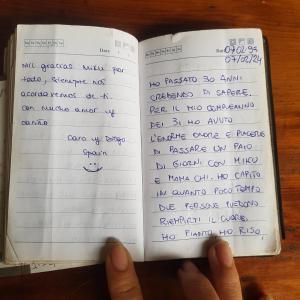 Date
Mil gracias Miku por
todo, siempre nos
acordaremos de ti
con mucho amor y
cariño
Cara y Diego
Spain
07.02.94
07/02/24
HO PASSATO 30 ANNI
CREDENDO DI SAPERE.
PER IL MIO COMPLEANNO
DEI 31 HO AVUTO
L'ENORME ONORE E PIACERE
DI PASSARE UN PAIO
DI GIORNI CON MIKU
E MAMA CHI, HO CAPITO
IN QUANTO POCO TEMPO
DUE PERSONE PUSSONO
RIEMPIRTI IL CUORE,
HO PIANTO HO RISO,